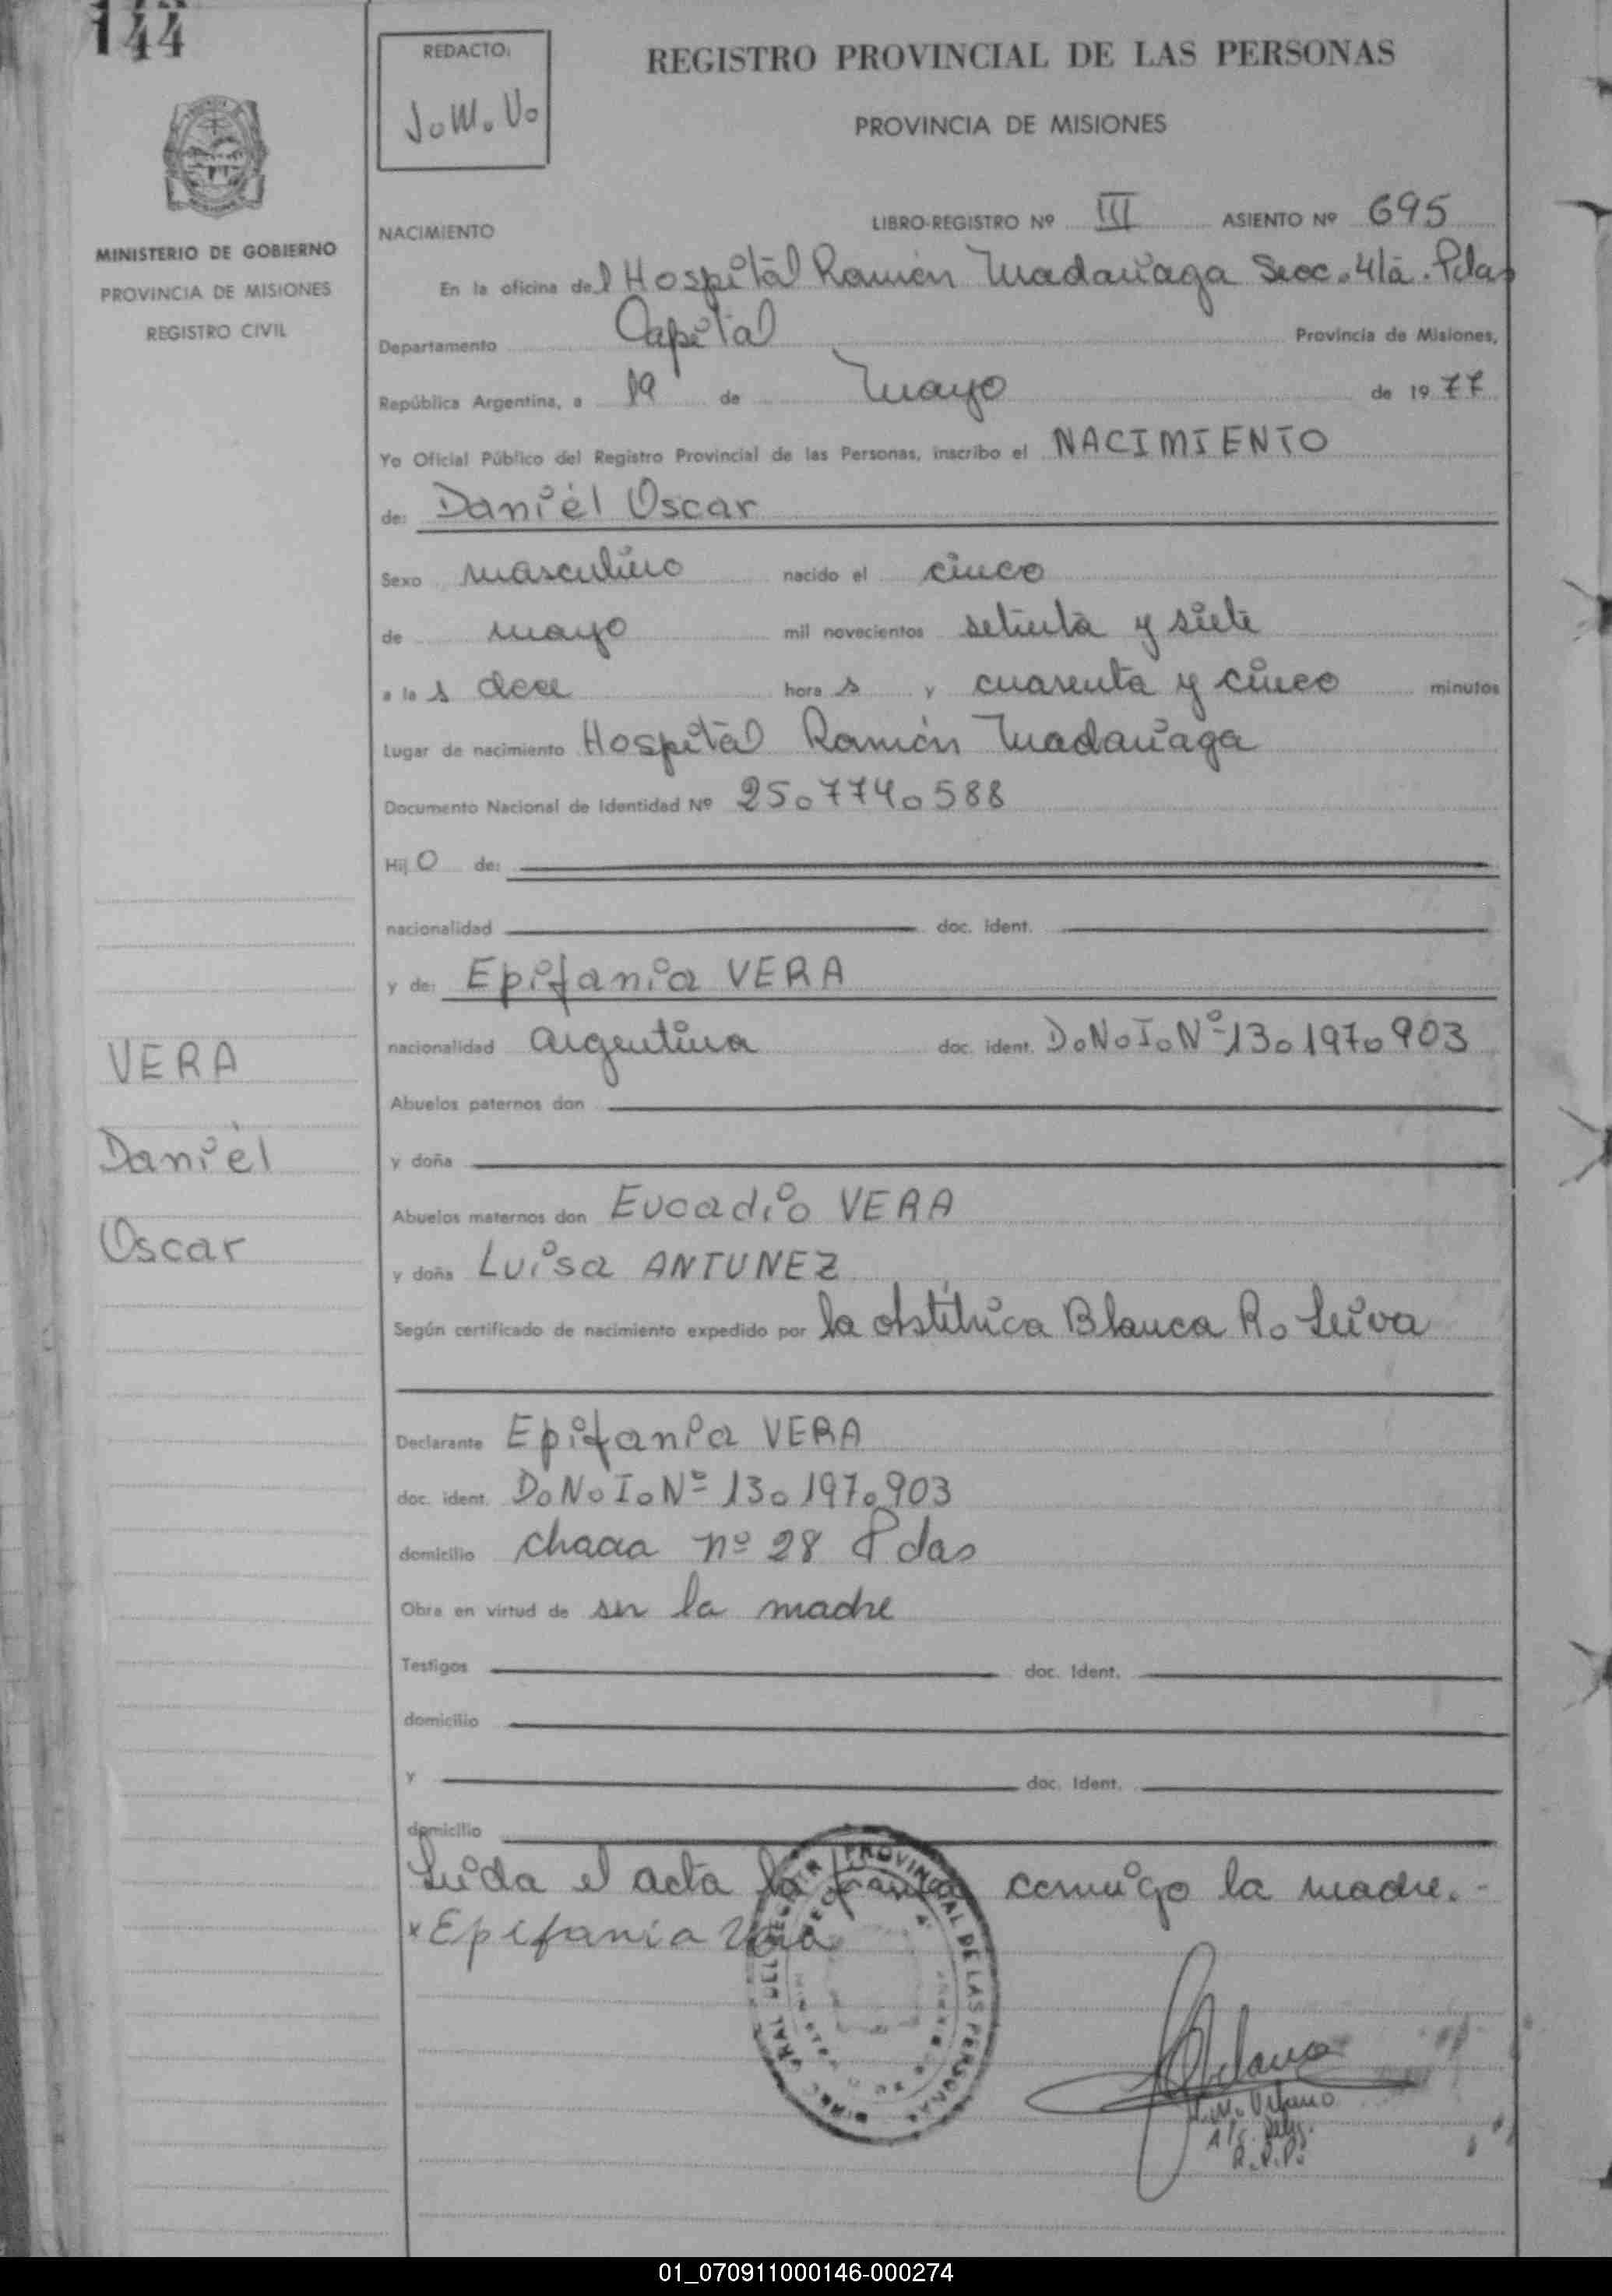 144
REDACTO:
J.M.V.
REGISTRO PROVINCIAL DE LAS PERSONAS
PROVINCIA DE MISIONES
MINISTERIO DE GOBIERNO
PROVINCIA DE MISIONES
REGISTRO CIVIL
NACIMIENTO LIBRO-REGISTRO Nº III ASIENTO Nº 695
En la oficina del Hospital Ramón Madariaga Secc. 4ta. Pdas
Departamento Capital Provincia de Misiones,
República Argentina, a 19 de Mayo de 1977
Yo Oficial Público del Registro Provincial de las Personas, inscribo el NACIMIENTO
de: Daniel Oscar
Sexo masculino nacido el cinco
de mayo mil novecientos setenta y siete
a las doce horas y cuarenta y cinco minutos
Lugar de nacimiento Hospital Ramón Madariaga
Documento Nacional de Identidad Nº 25.774.588
Hijo de:
nacionalidad doc. ident.
y de: Epifania VERA
nacionalidad argentina doc. ident. D.N.I. Nº 13.197.903
Abuelos paternos don
y doña
Abuelos maternos don Eucadio VERA
y doña Luisa ANTUNEZ
Según certificado de nacimiento expedido por la obstétrica Blanca R. Leiva
Declarante Epifania VERA
doc. ident. D.N.I. Nº 13.197.903
domicilio chacra nº 28 Pdas
Obra en virtud de ser la madre
Testigos doc. Ident.
domicilio
y doc. Ident.
domicilio
Leida el acta la firma conmigo la madre.-
x Epifania Vera
VERA
Daniel
Oscar
PROVINCIAL DE LAS PERSONAS
01_070911000146-000274